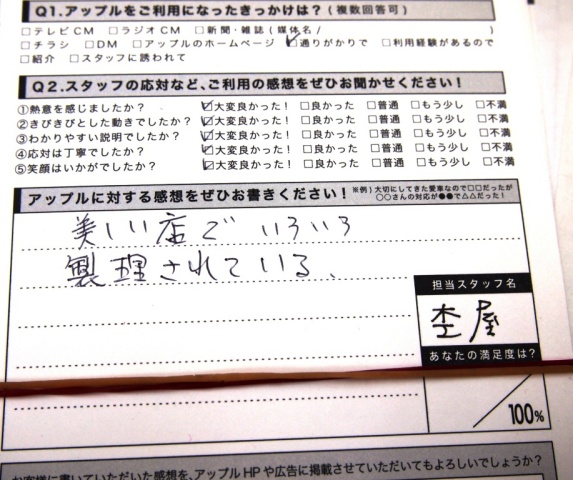 Q1.アップルをご利用になったきっかけは?(複数回答可)
□テレビCM □ラジオCM □新聞・雑誌(媒体名/ )
□チラシ □DM □アップルのホームページ ☑通りがかりで □利用経験があるので
□紹介 □スタッフに誘われて
Q2.スタッフの応対など、ご利用の感想をぜひお聞かせください!
①熱意を感じましたか? ☑大変良かった! □良かった □普通 □もう少し □不満
②きびきびとした動きでしたか? ☑大変良かった! □良かった □普通 □もう少し □不満
③わかりやすい説明でしたか? ☑大変良かった! □良かった □普通 □もう少し □不満
④応対は丁寧でしたか? ☑大変良かった! □良かった □普通 □もう少し □不満
⑤笑顔はいかがでしたか? ☑大変良かった! □良かった □普通 □もう少し □不満
アップルに対する感想をぜひお書きください!
※例)大切にしてきた愛車なので□□だったが
○○さんの対応が●●で△△だった!
美しい店でいろいろ
製理されている、
担当スタッフ名
屋
あなたの満足度は?
100%
お客様に書いていただいた感想を、アップルHPや広告に掲載させていただいてもよろしいでしょうか?